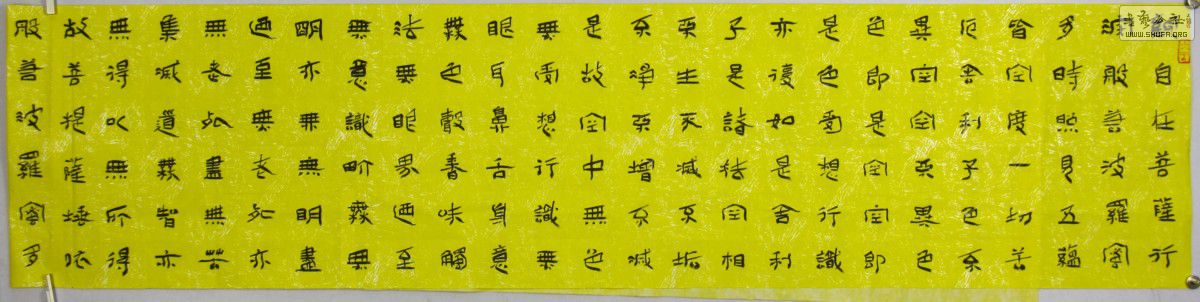 自在菩薩行
深般若波羅蜜
多時照見五蘊
皆空度一切苦
厄舍利子色不
異空空不異色
色即是空空即
是色受想行識
亦復如是舍利
子是諸法空相
不生不滅不垢
不淨不增不減
是故空中無色
無受想行識無
眼耳鼻舌身意
無色聲香味觸
法無眼界迺至
無意識界無無
明亦無無明盡
迺至無老死亦
無老死盡無苦
集滅道無智亦
無得以無所得
故菩提薩埵依
般若波羅蜜多
WWW.SHUFA.ORG